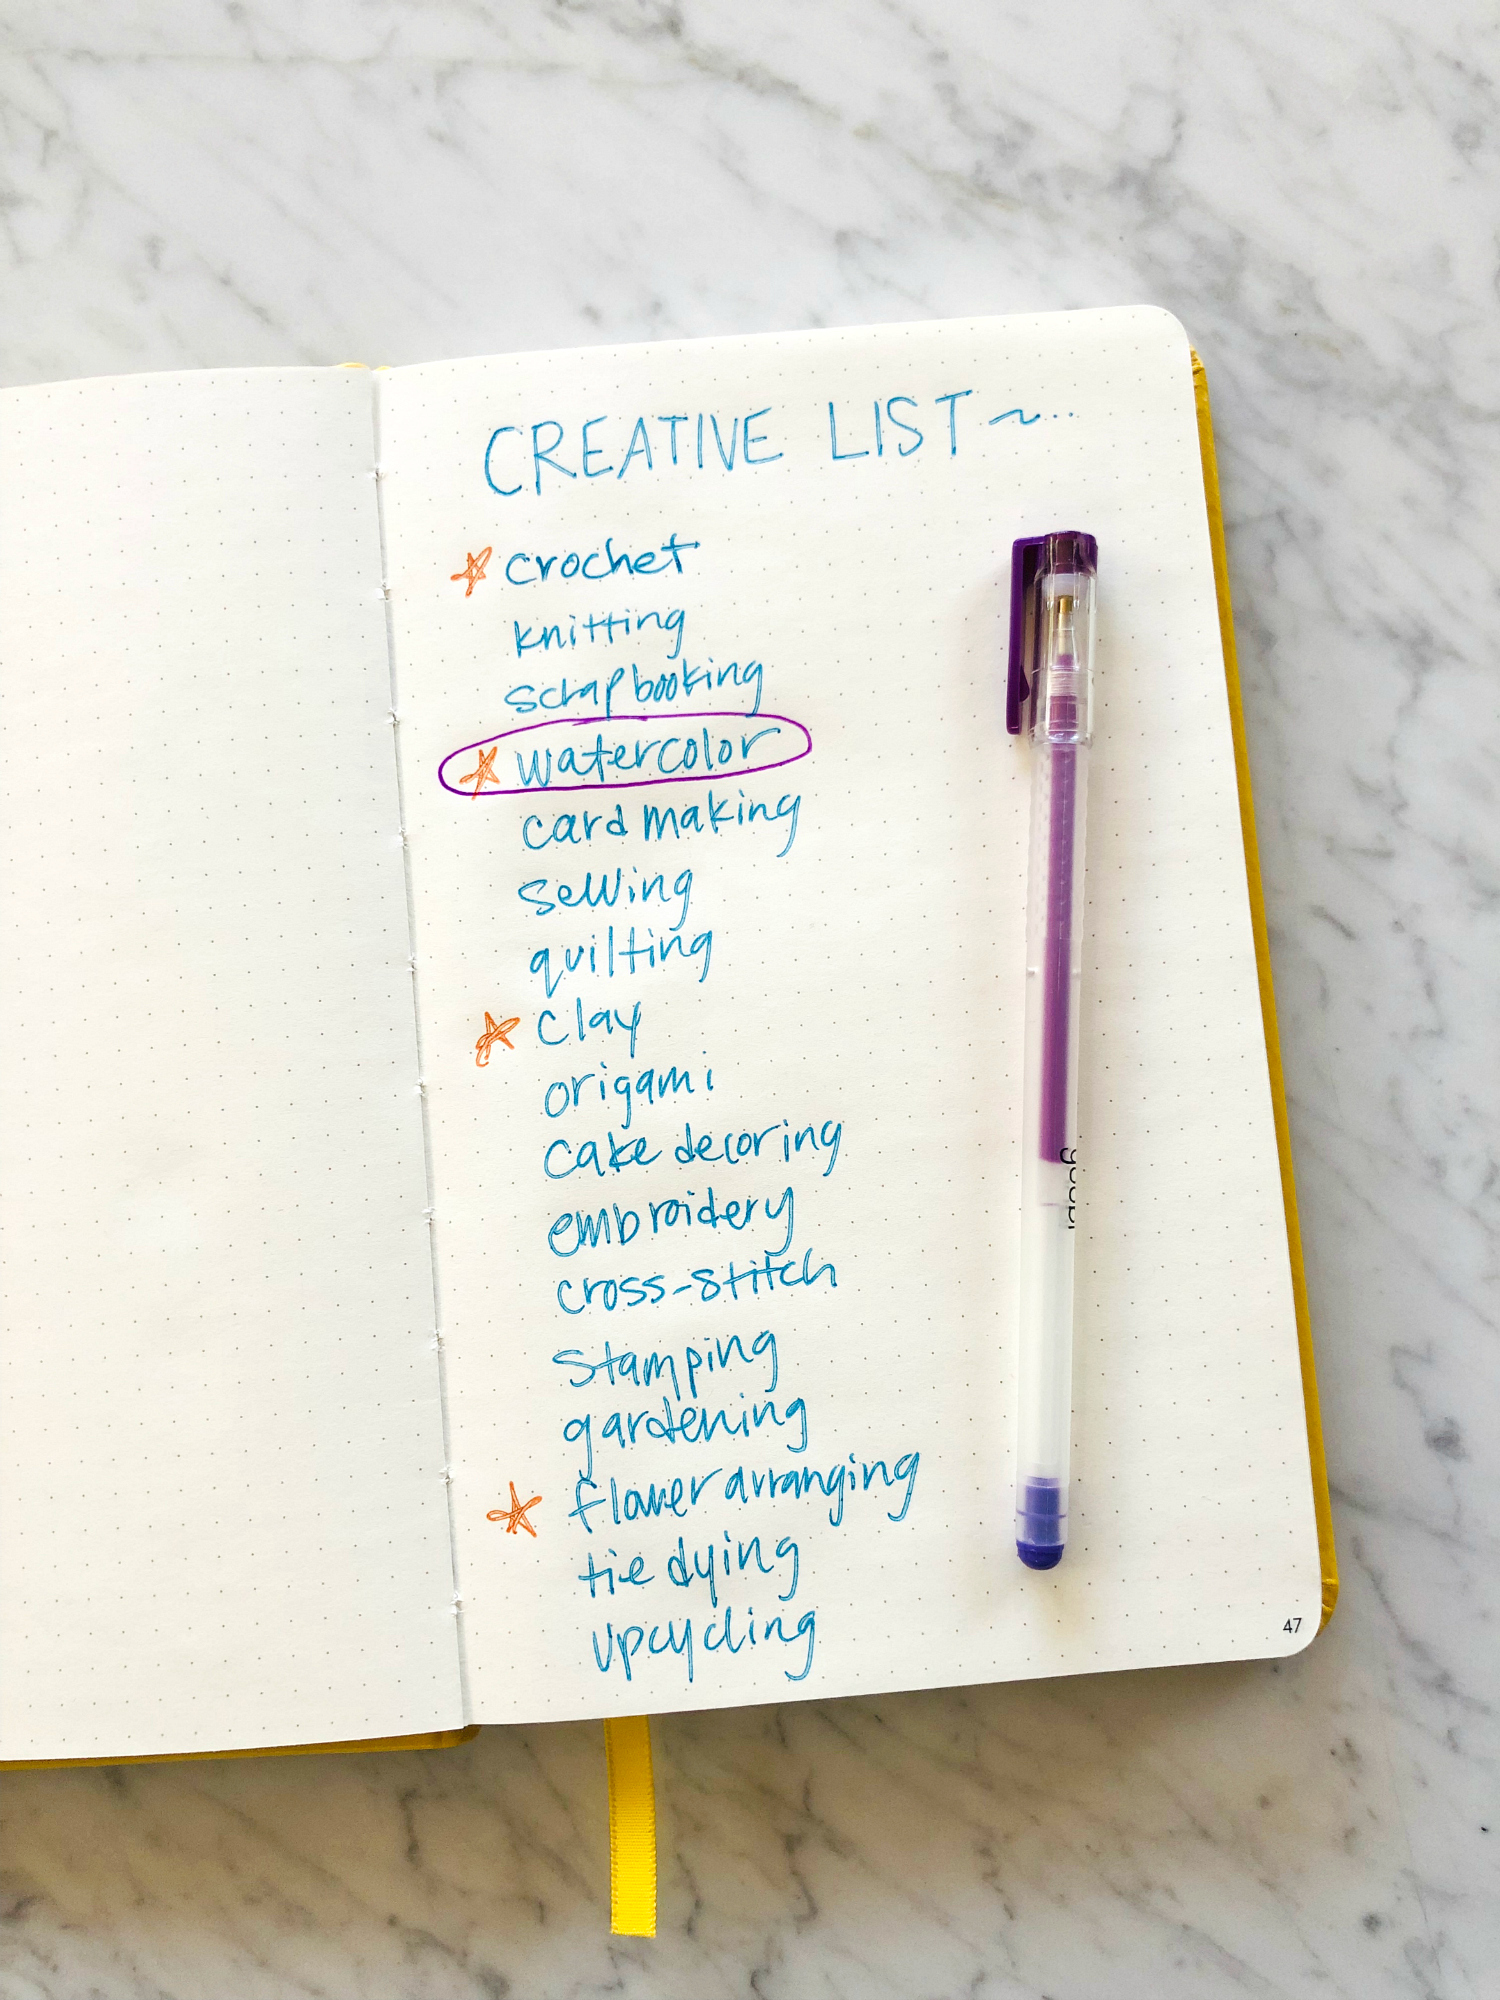 CREATIVE LIST ~...
crochet
knitting
scrapbooking
watercolor
card making
sewing
quilting
clay
origami
cake decoring
embroidery
cross-stitch
stamping
gardening
flower arranging
tie dying
upcycling
47